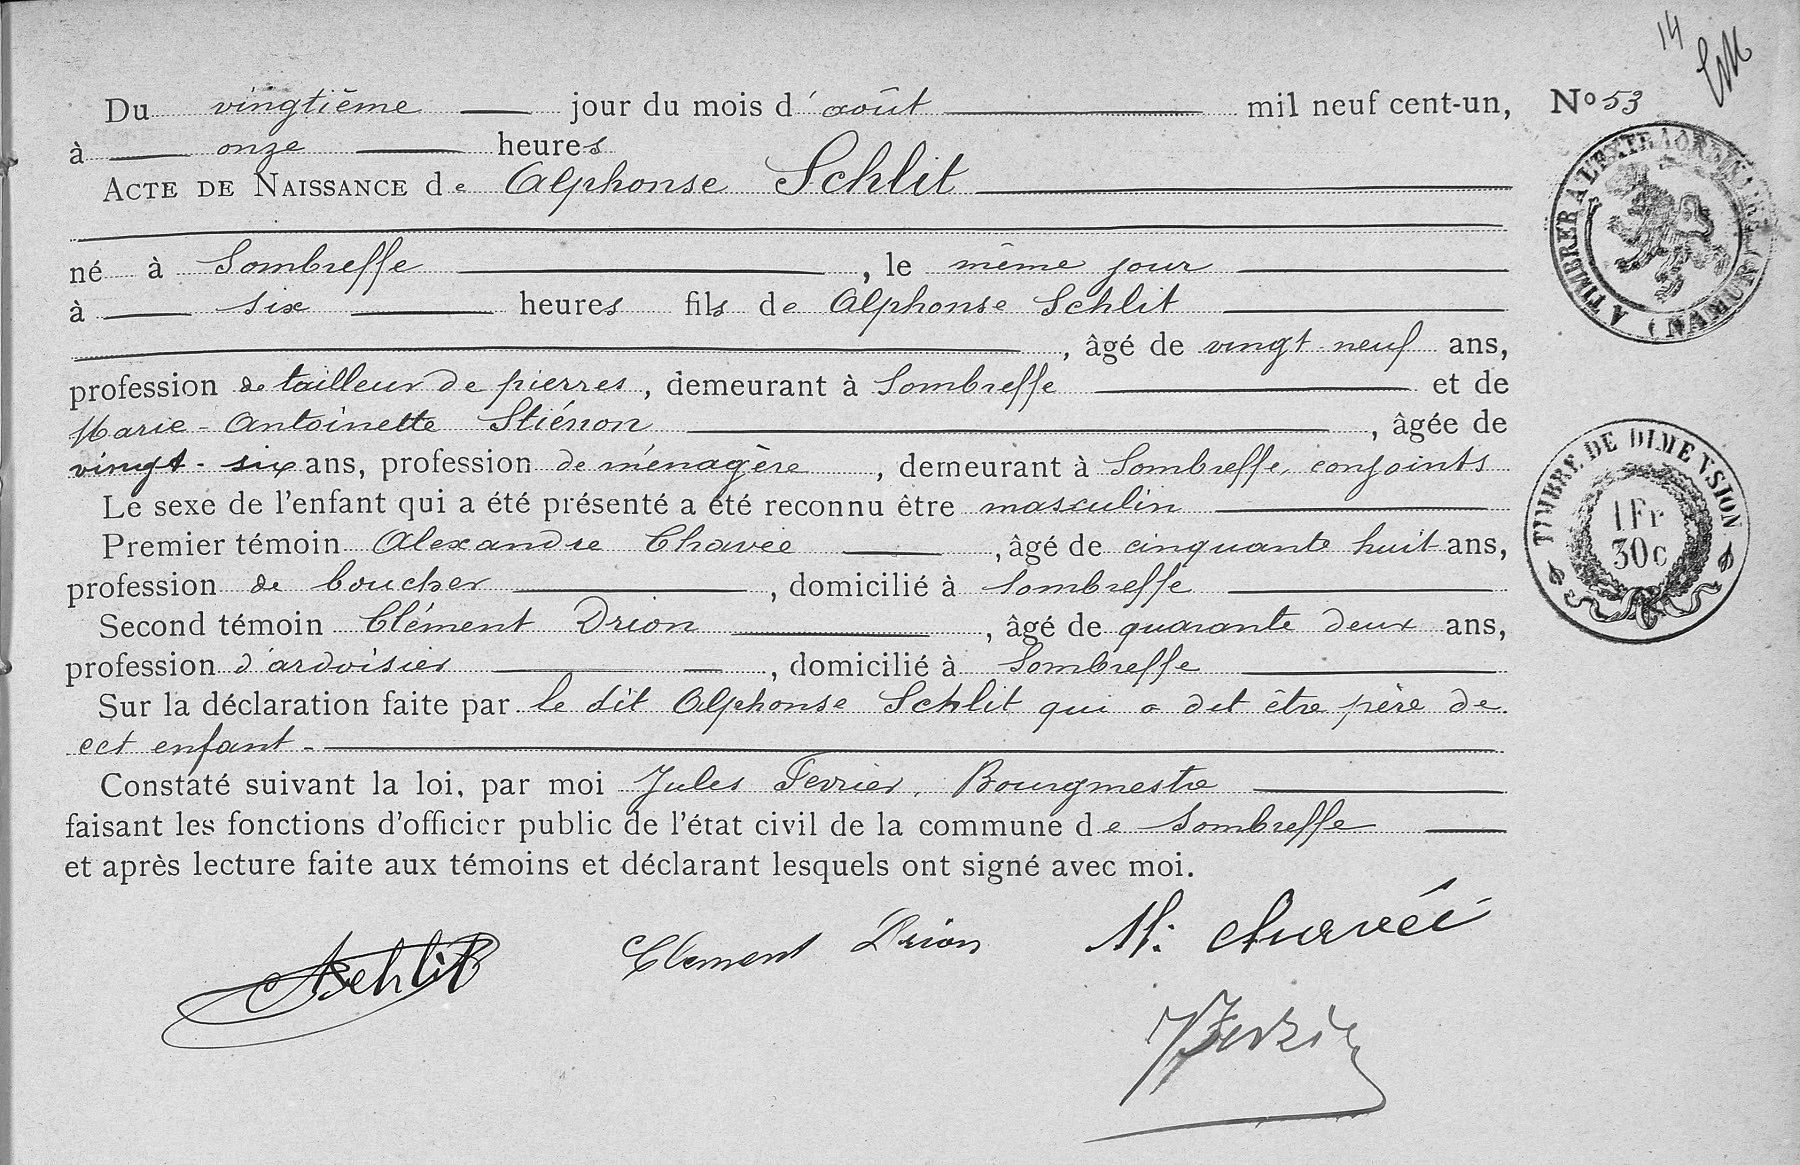 14
Du vingtième jour du mois d'août mil neuf cent-un, No 53
à onze heures
ACTE DE NAISSANCE de Alphonse Schlit
né à Sombreffe, le même jour
à six heures fils de Alphonse Schlit
, âgé de vingt-neuf ans,
profession de tailleur de pierres, demeurant à Sombreffe et de
Marie-Antoinette Stiénon, âgée de
vingt-six ans, profession de ménagère, demeurant à Sombreffe, conjoints
Le sexe de l'enfant qui a été présenté a été reconnu être masculin
Premier témoin Alexandre Chavée, âgé de cinquante huit ans,
profession de boucher, domicilié à Sombreffe
Second témoin Clément Drion, âgé de quarante deux ans,
profession d'ardoisier, domicilié à Sombreffe
Sur la déclaration faite par le dit Alphonse Schlit qui a dit être père de
cet enfant.
Constaté suivant la loi, par moi Jules Fevrier, Bourgmestre
faisant les fonctions d'officier public de l'état civil de la commune de Sombreffe
et après lecture faite aux témoins et déclarant lesquels ont signé avec moi.
A TIMBRER A L'EXTRAORDINAIRE (NAMUR)
TIMBRE DE DIMENSION
1 Fr
30 c
ASchlit Clement Drion Al: chavéé
JFevrier